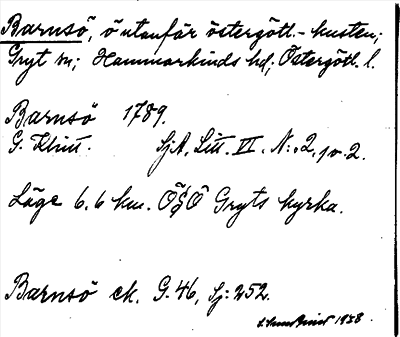 Barnsö, ö utanför östergötl.-kusten;
Gryt sn; Hammarkinds hd; Östergötl. l.
Barnsö 1789.
G. Klint. Sj.A. Litt. VI. N:o 2, 1 o. 2.
Läge 6.6 km. ÖSÖ Gryts kyrka.
Barnsö ek. G. 46, Sj: 252.
1938